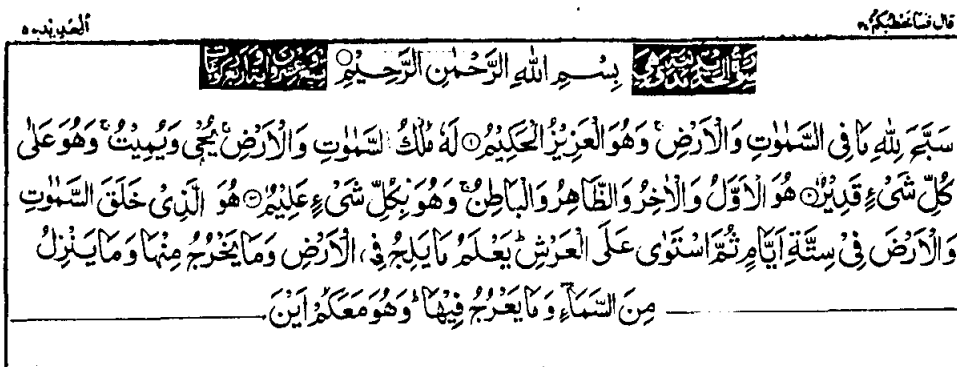 قال فما خطبكم ٢٧ الحديد ٥٧
سورة الحديد مدنية وهي بِسْمِ اللهِ الرَّحْمٰنِ الرَّحِيْمِ تسع وعشرون اية واربع ركوعات
سَبَّحَ لِلّٰهِ مَا فِى السَّمٰوٰتِ وَالْاَرْضِ ۚ وَهُوَ الْعَزِيْزُ الْحَكِيْمُ ۝١ لَهٗ مُلْكُ السَّمٰوٰتِ وَالْاَرْضِ ۚ يُحْيٖ وَيُمِيْتُ ۚ وَهُوَ عَلٰى
كُلِّ شَىْءٍ قَدِيْرٌ ۝٢ هُوَ الْاَوَّلُ وَالْاٰخِرُ وَالظَّاهِرُ وَالْبَاطِنُ ۚ وَهُوَ بِكُلِّ شَىْءٍ عَلِيْمٌ ۝٣ هُوَ الَّذِىْ خَلَقَ السَّمٰوٰتِ
وَالْاَرْضَ فِىْ سِتَّةِ اَيَّامٍ ثُمَّ اسْتَوٰى عَلَى الْعَرْشِ ؕ يَعْلَمُ مَا يَلِجُ فِى الْاَرْضِ وَمَا يَخْرُجُ مِنْهَا وَمَا يَنْزِلُ
مِنَ السَّمَآءِ وَمَا يَعْرُجُ فِيْهَا ؕ وَهُوَ مَعَكُمْ اَيْنَ